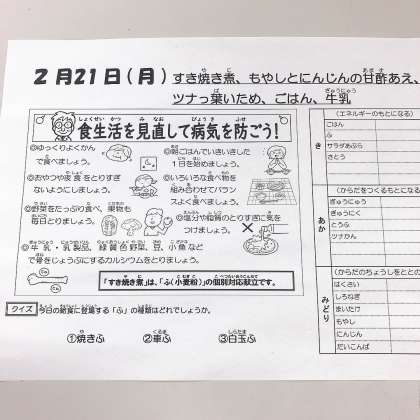 2月21日(月) すき焼き煮、もやしとにんじんの甘酢あえ、
ツナっ葉いため、ごはん、牛乳
食生活を見直して病気を防ごう!
◎ゆっくりよくかん
で食べましょう。
◎朝ごはんでいきいきした
1日を始めましょう。
◎おやつや夜食をとりすぎ
ないようにしましょう。
◎いろいろな食べ物を
組み合わせてバラン
スよく食べましょう。
◎野菜をたっぷり食べ、果物も
毎日とりましょう。
◎塩分や脂質のとりすぎに気を
つけましょう。
◎牛乳・乳製品、緑黄色野菜、豆、小魚など
で骨をじょうぶにするカルシウムをとりましょう。
「すき焼き煮」は、「ふ(小麦粉)」の個別対応献立です。
クイズ 今日の給食に登場する「ふ」の種類はどれでしょうか。
①焼きふ ②車ふ ③白玉ふ
き
(エネルギーのもとになる)
ごはん
ふ
サラダあぶら
さとう
あか
(からだをつくるもとになる
ぎゅうにゅう
ぎゅうにく
とうふ
ツナかん
みどり
(からだのちょうしをととの
はくさい
しろねぎ
まいたけ
もやし
にんじん
だいこんば